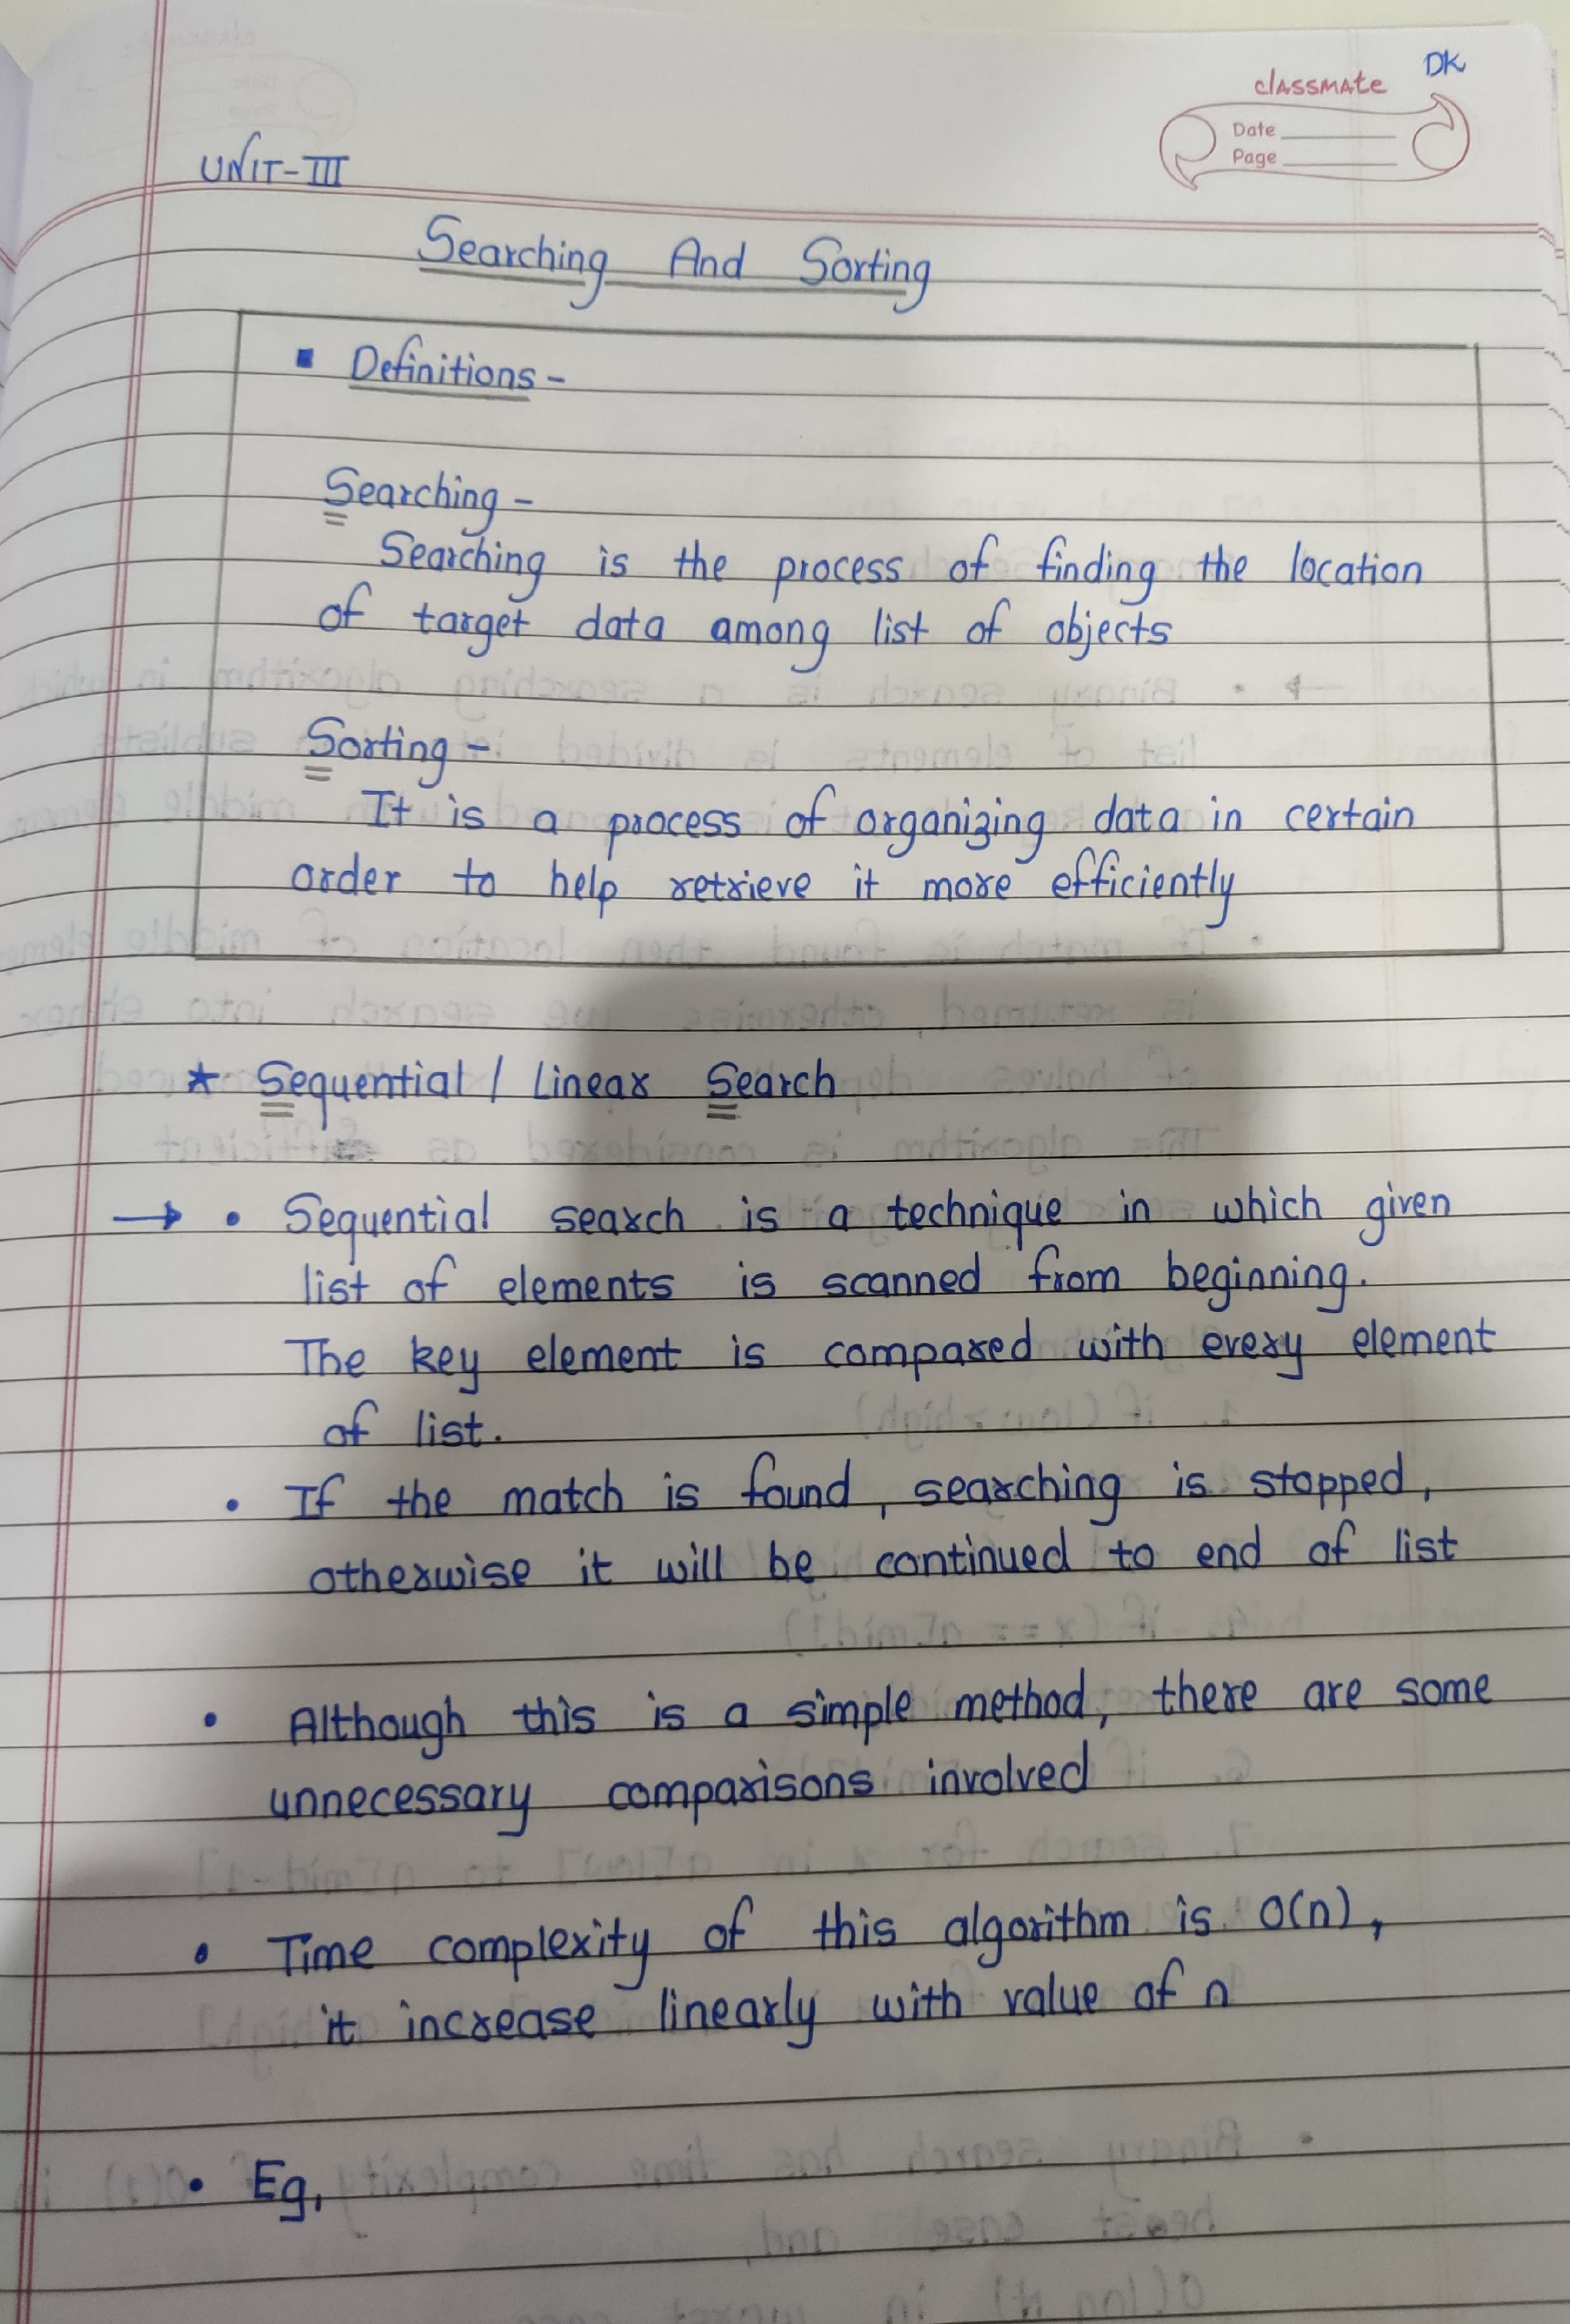 DK
classmate
Date
Page
UNIT-III
Searching And Sorting
▪ Definitions -
Searching -
Searching is the process of finding the location
of target data among list of objects
Sorting -
It is a process of organizing data in certain
order to help retrieve it more efficiently
★ Sequential / Linear Search
→ • Sequential search is a technique in which given
list of elements is scanned from beginning.
The key element is compared with every element
of list.
• If the match is found, searching is stopped,
otherwise it will be continued to end of list
• Although this is a simple method, there are some
unnecessary comparisons involved
• Time complexity of this algorithm is O(n),
it increase linearly with value of n
• Eg,